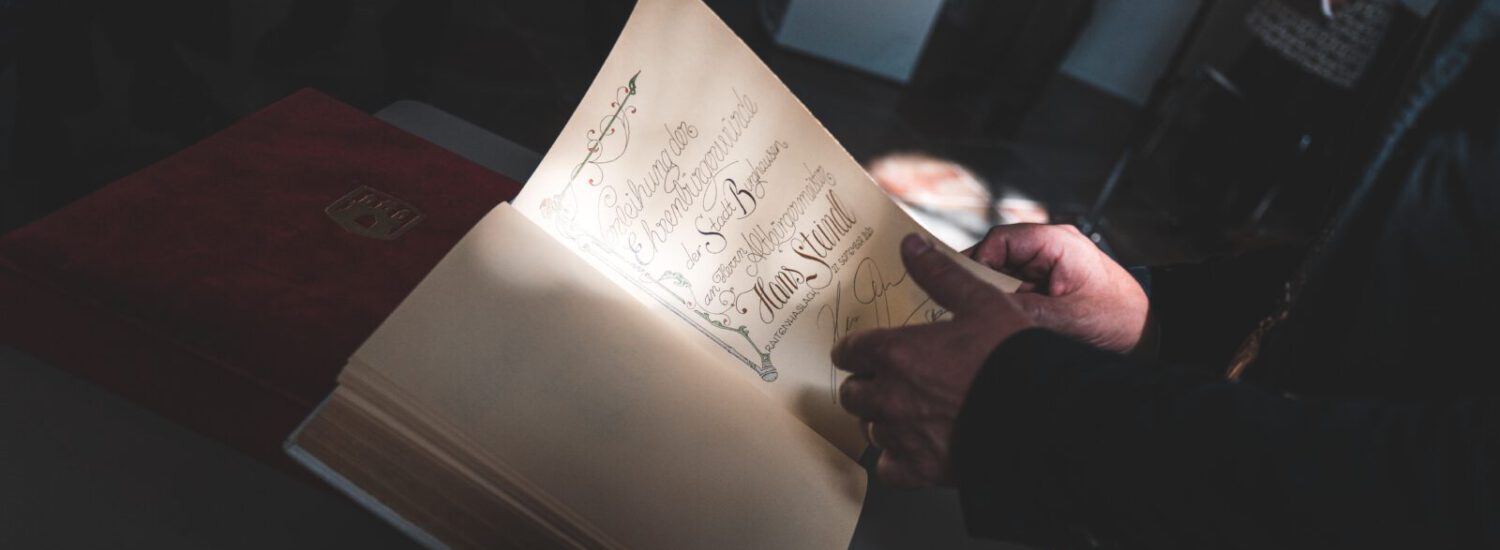 Verleihung der
Ehrenbürgerwürde
der Stadt Burghausen
an Herrn
Altbürgermeister
Hans Steindl
RAITENHASLACH, 27. SEPTEMBER 2020